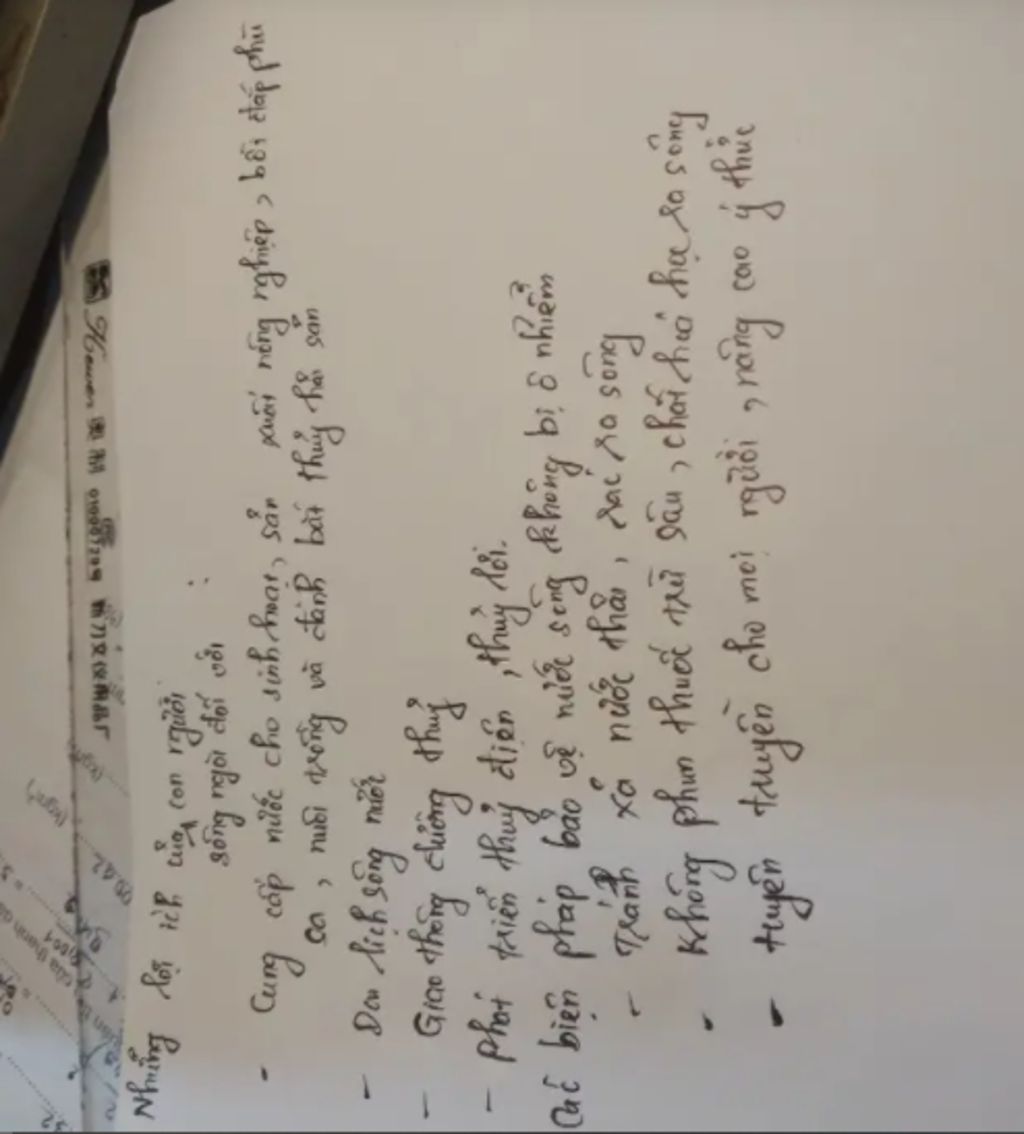 Những lợi ích của con người
sông ngòi đối với :
- Cung cấp nước cho sinh hoạt, sản xuất nông nghiệp, bồi đắp phù
sa, nuôi trồng và đánh bắt thủy hải sản
- Du lịch sông nước
- Giao thông đường thuỷ
- phát triển thuỷ điện, thuỷ lợi.
Các biện pháp bảo vệ nước sông không bị ô nhiễm
- Tránh xả nước thải, rác ra sông
- Không phun thuốc trừ sâu, chất hoá học ra sông
- tuyên truyền cho mọi người, nâng cao ý thức